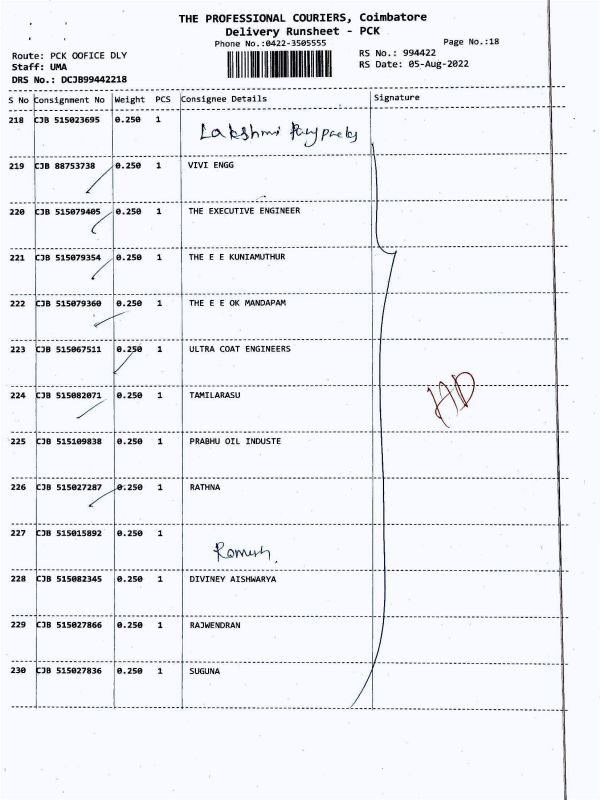 THE PROFESSIONAL COURIERS, Coimbatore
Delivery Runsheet - PCK
Phone No.:0422-3505555
Page No.:18
Route: PCK OOFICE DLY
RS No.: 994422
Staff: UMA
RS Date: 05-Aug-2022
DRS No.: DCJB99442218
S No Consignment No Weight PCS Consignee Details Signature
218 CJB 515023695 0.250 1
Lakshmi
219 CJB 88753738 0.250 1 VIVI ENGG
220 CJB 515079405 0.250 1 THE EXECUTIVE ENGINEER
221 CJB 515079354 0.250 1 THE E E KUNIAMUTHUR
222 CJB 515079360 0.250 1 THE E E OK MANDAPAM
223 CJB 515067511 0.250 1 ULTRA COAT ENGINEERS
224 CJB 515082071 0.250 1 TAMILARASU
HD
225 CJB 515109838 0.250 1 PRABHU OIL INDUSTE
226 CJB 515027287 0.250 1 RATHNA
227 CJB 515015892 0.250 1
Ramesh.
228 CJB 515082345 0.250 1 DIVINEY AISHWARYA
229 CJB 515027866 0.250 1 RAJWENDRAN
230 CJB 515027836 0.250 1 SUGUNA